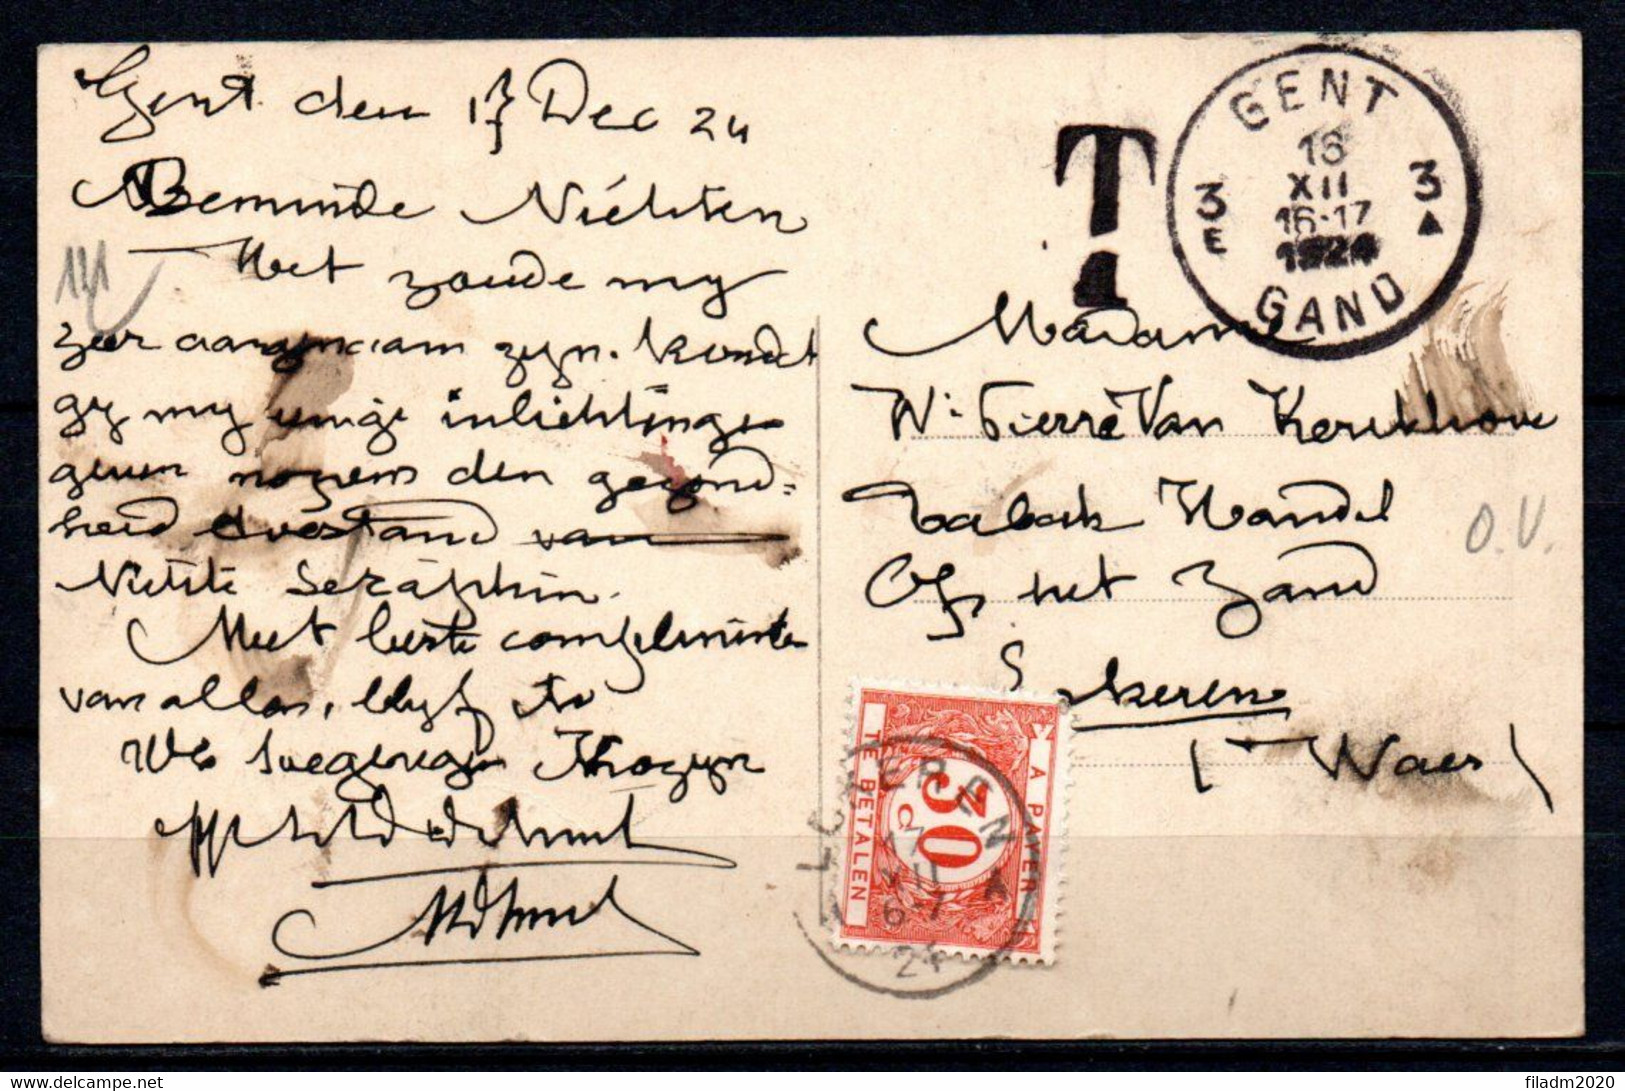 Gent den 17 Dec 24
Beminde Nichten
Het zoude my
zeer aangenaam zyn. Kondt
gy my eenige inlichtingen
geven nopens den gezond=
heid toestand van
Nichte Seraphin.
Met beste complimenten
van allen, blyf ik
Uw toegenegen Kozyn
141
T
GENT
16
XII
16-17
1924
3
E
3
A
GAND
Madame
We Pierre Van Kerckhove
Tabak Handel
Op het Zand
Lokeren
(Waes)
O.V.
A PAYER
30
C
TE BETALEN
LOKEREN
17
XII
6-7
24
Delcampe.net
filadm2020